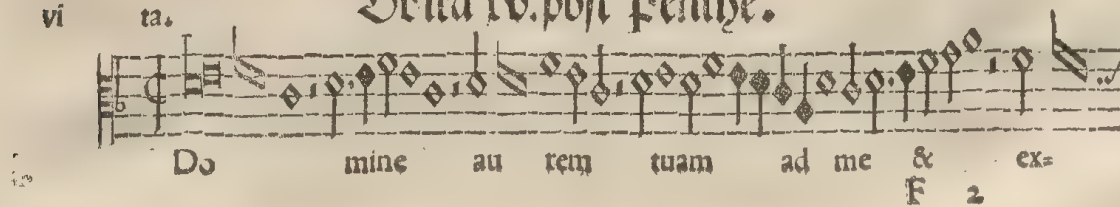 vi ta.
xv. post Penthe.
Do mine au rem tuam ad me & ex=
F 2